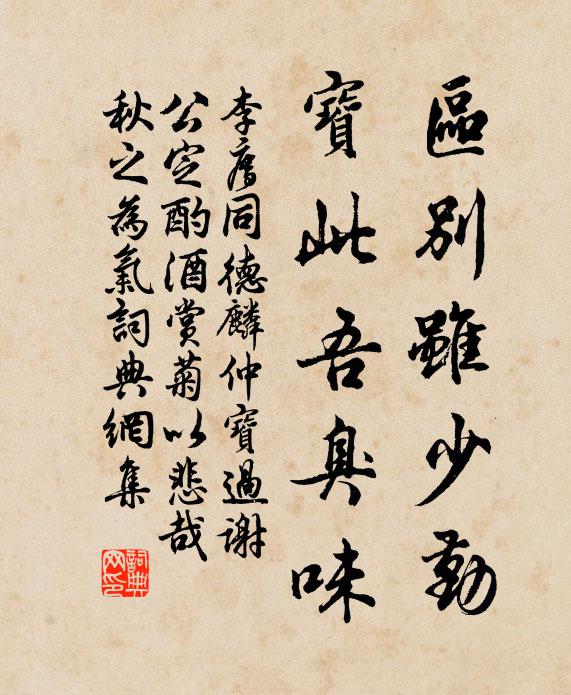 區別雖少勤
寶此吾臭味
李廌同德麟仲寶過謝
公定酌酒賞菊以悲哉
秋之為氣詞典網集
詞典网印